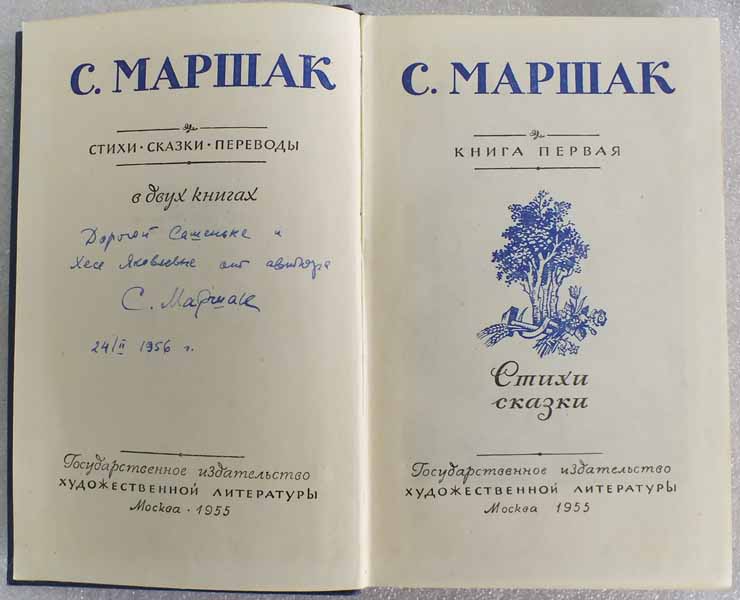 С. МАРШАК
СТИХИ • СКАЗКИ • ПЕРЕВОДЫ
в двух книгах
Дорогой Сашеньке и
Хесе Яковлевне от автора
С. Маршак
24/II 1956 г.
Государственное издательство
ХУДОЖЕСТВЕННОЙ ЛИТЕРАТУРЫ
Москва • 1955
С. МАРШАК
КНИГА ПЕРВАЯ
Стихи
сказки
Государственное издательство
ХУДОЖЕСТВЕННОЙ ЛИТЕРАТУРЫ
Москва 1955